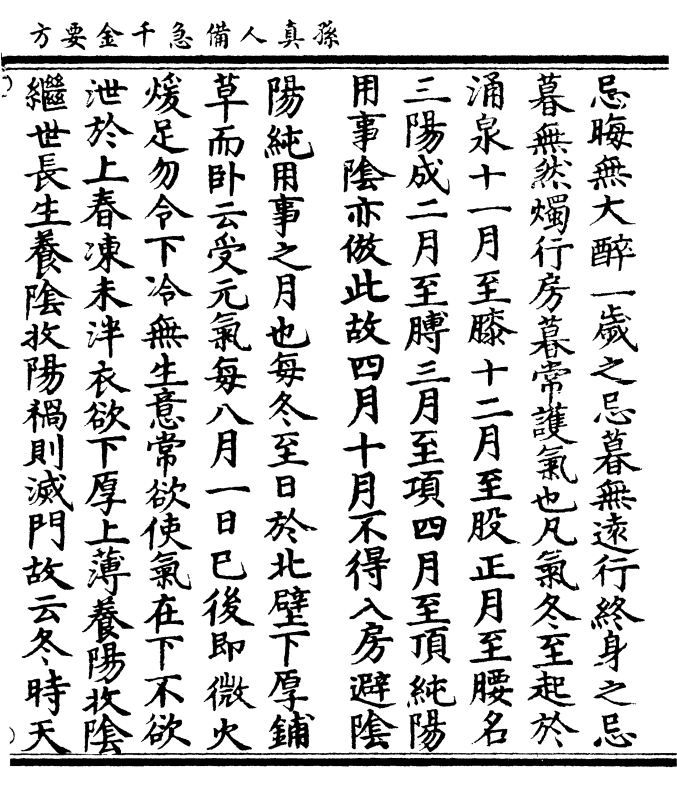 孫真人備急千金要方
忌晦無大醉一歲之忌暮無遠行終身之忌
暮無然燭行房暮常護氣也凡氣冬至起於
涌泉十一月至膝十二月至股正月至腰名
三陽成二月至膊三月至項四月至頂純陽
用事陰亦倣此故四月十月不得入房避陰
陽純用事之月也每冬至日於北壁下厚鋪
草而卧云受元氣每八月一日已後即微火
煖足勿令下冷無生意常欲使氣在下不欲
泄於上春凍未泮衣欲下厚上薄養陽收陰
繼世長生養陰收陽禍則滅門故云冬時天